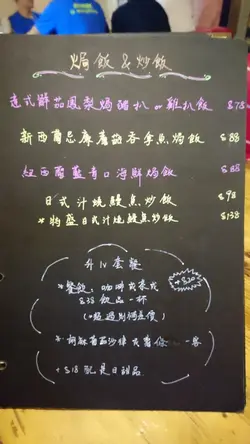 焗飯 & 炒飯
鮮茄鳳梨焗豬扒 or 雞扒飯 $78
新西蘭忌廉蘑菇吞拿魚焗飯 $88
紐西蘭藍青口海鮮焗飯 $88
日式汁燒鰻魚炒飯 $98
日式汁燒鰻魚炒飯 $138
升lv套餐
+$20
餐飲: 咖啡或茶或
$38飲品一杯
一客
+$18 配是日甜品